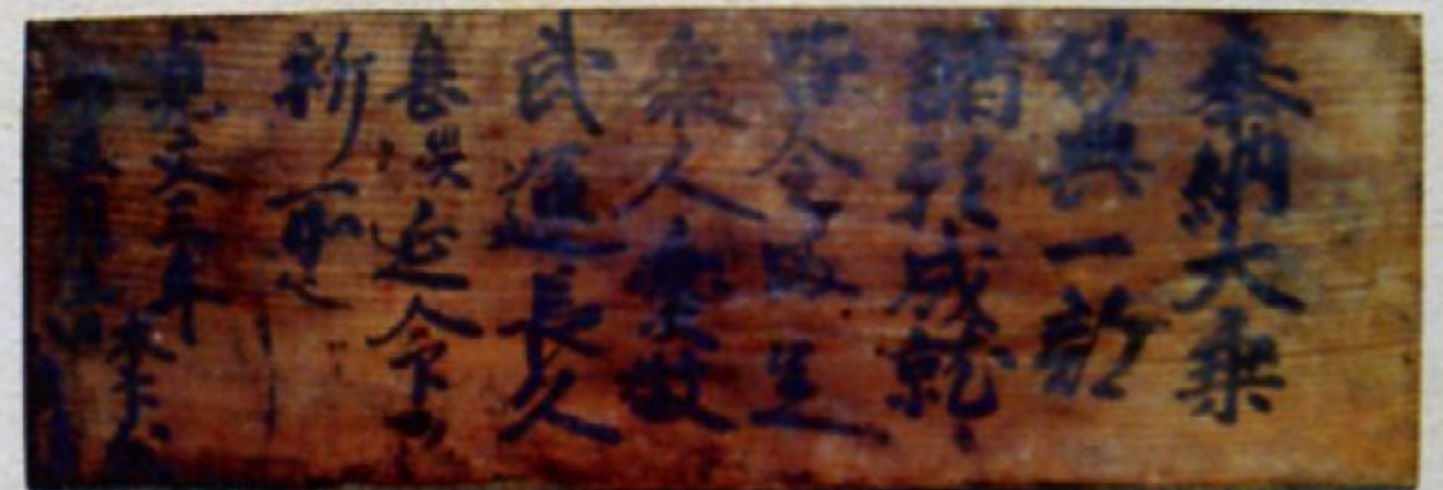 奉納大乗
妙典一部
諸願成就
皆令満足
衆人愛敬
武運長久
息災延命
祈所
寛文三年
五月